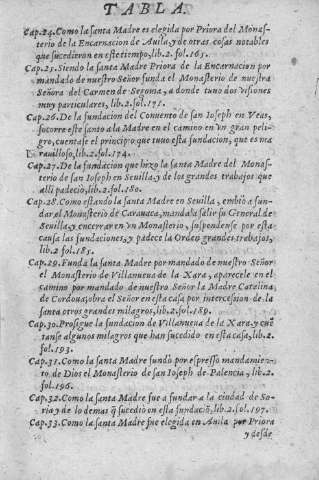 TABLA.
Cap.24.Como la santa Madre es elegida por Priora del Monas-
terio de la Encarnacion de Auila,y de otras cosas notables
que sucedieron en este tiempo,lib.2.fol.163.
Cap.25.Siendo la santa Madre Priora de la Encarnacion por
mandado de nuestro Señor funda el Monasterio de nuestra
Señora del Carmen de Segouia,y a donde tuuo dos visiones
muy particulares, lib.2.fol.171.
Cap.26.De la fundacion del Conuento de san Ioseph en Veas,
socorre este santo a la Madre en el camino en vn gran peli-
gro,cuentase el principio que tuuo esta fundacion, que es ma
rauilloso,lib.2.fol.174.
Cap.27.De la fundacion que hizo la santa Madre del Monas-
terio de san Ioseph en Seuilla,y de los grandes trabajos que
alli padecio,lib.2.fol.180.
Cap.28.Como estando la santa Madre en Seuilla, embiò a fun-
dar al Monasterio de Carauaca,mandala salir su General de
Seuilla,y encerrar en vn Monasterio, suspendense por esta
causa las fundaciones,y padece la Orden grandes trabajos,
lib.2.fol.185.
Cap.29.Funda la santa Madre por mandado de nuestro Señor
el Monasterio de Villanueua de la Xara, aparecele en el
camino por mandado de nuestro Señor la Madre Catalina
de Cordoua,obra el Señor en esta casa por intercession de la
santa otros grandes milagros,lib.2.fol.189.
Cap.30.Prosigue la fundacion de Villanueua de la Xara,y cuē
tanse algunos milagros que han sucedido en esta casa,lib.2.
fol.193.
Cap.31.Como la santa Madre fundò por espresso mandamien-
to de Dios el Monasterio de san Ioseph de Palencia, lib.2.
fol.196.
Cap.32.Como la santa Madre fue a fundar a la ciudad de So-
ria,y de lo demas q̃ sucedio en esta fundaciō, lib.2.fol.197.
Cap.33.Como la santa Madre fue elegida en Auila por Priora
y desde